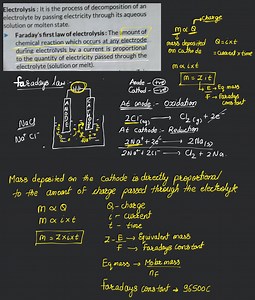 Electrolysis : It is the process of decomposition of an
electrolyte by passing electricity through its aqueous
solution or molten state.
Faraday's first law of electrolysis: The amount of
chemical reaction which occurs at any electrode
during electrolysis by a current is proportional
to the quantity of electricity passed through the
electrolyte (solution or melt).
charge
m ∝ Q
mass deposited
on cathode
Q = i×t
= current × time
m ∝ i×t
m = Z i t
E → Eq mass
F → Faradays
constant
faradays law
Anode - +ve
Cathod - -ve
At anode :- Oxidation
2Cl⁻ → Cl₂(g) + 2e⁻
At cathode :- Reduction
2Na⁺ + 2e⁻ → 2Na(s)
2Na⁺ + 2Cl⁻ → Cl₂ + 2Na
NaCl
Na⁺ Cl⁻
Mass deposited on the cathode is directly proportional
to the amount of charge passed through the electrolyte
m ∝ Q
m ∝ i×t
m = Z×i×t
Q - charge
i - current
t - time
Z - E → Equivalent mass
F → faradays constant
Eq mass → Molar mass
nf
faradays constant → 96500C